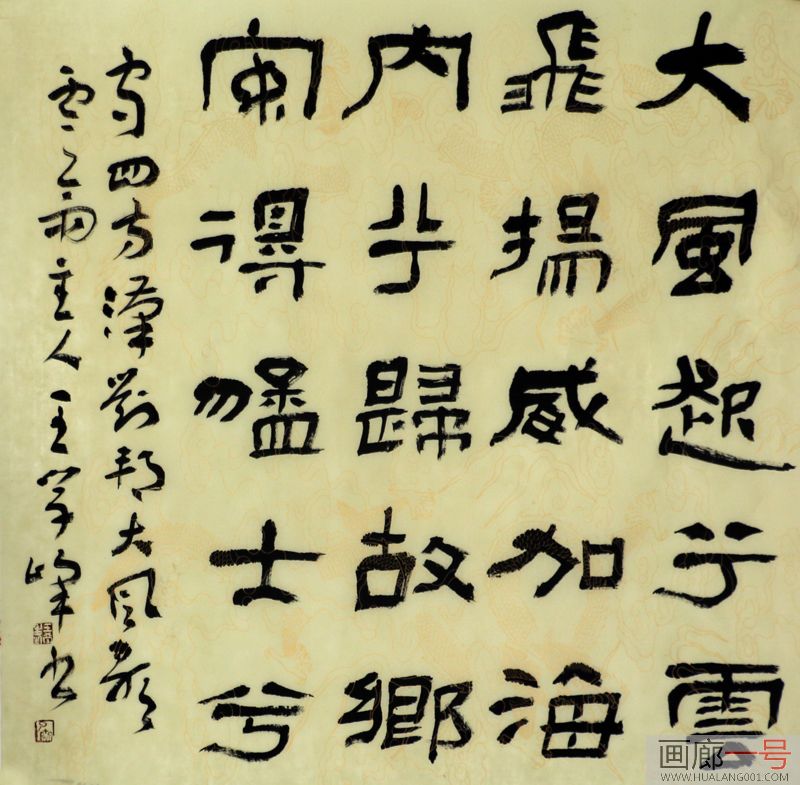 大風起兮雲
飛揚威加海
內兮歸故鄉
安得猛士兮
守四方漢劉邦大風歌
主人王学峰书
画廊一号
WWW.HUALANG001.COM